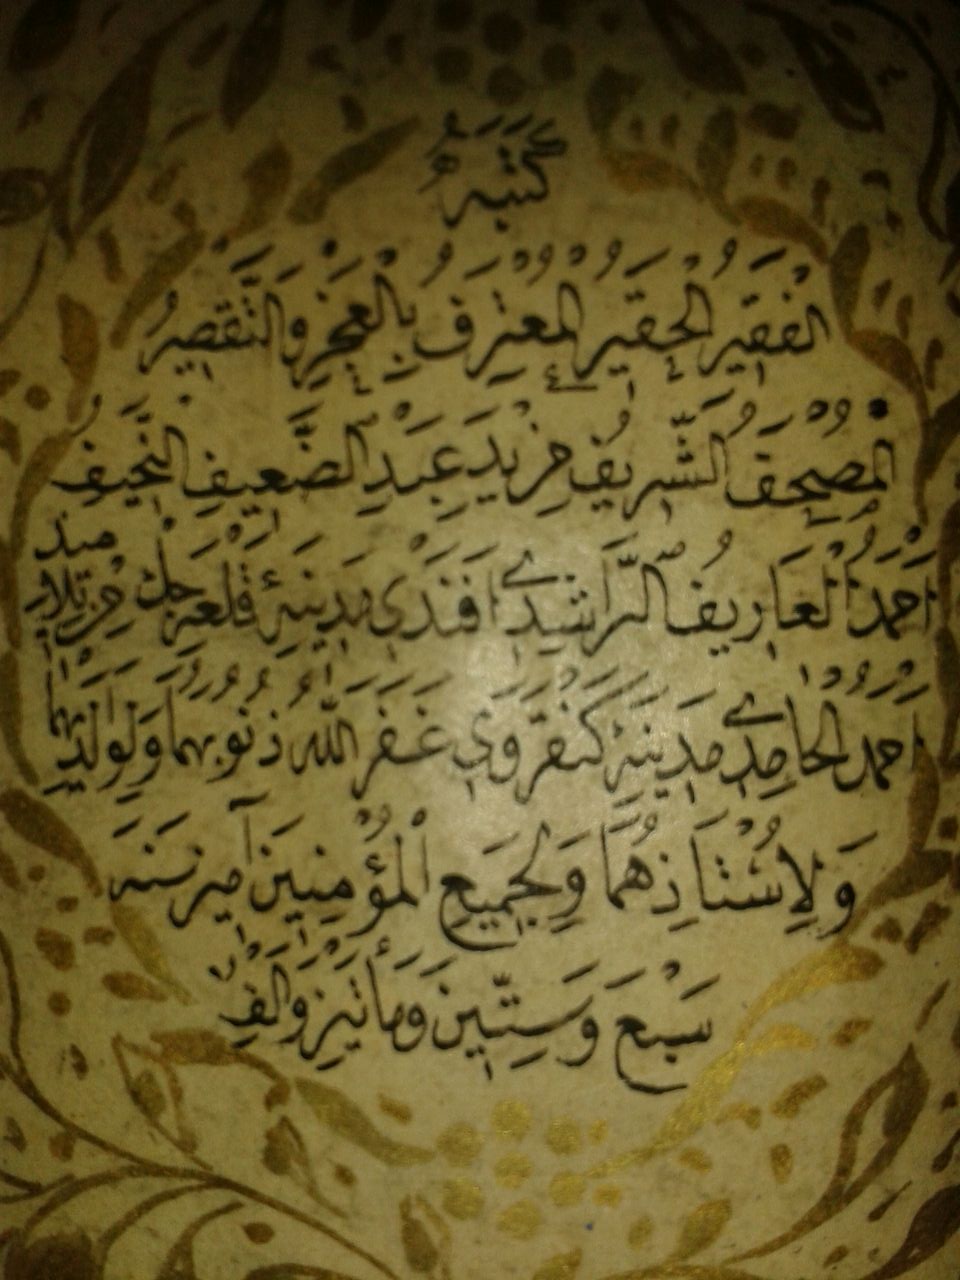 كَتَبَهُ
الْفَقِيرُ الْحَقِيرُ الْمُعْتَرِفُ بِالْعَجْزِ وَالتَّقْصِيرُ
الْمُصْحَفُ الشَّرِيفُ مِنْ يَدِ عَبْدِ الضَّعِيفِ النَّحِيفُ
اَحْمَدُ الْعَارِيفُ الرَّاشِدِي اَفَنْدِي مَدِينَهِٔ قَلْعَهِ
اَحْمَدُ الْحَامِدِي مَدِينَهِٔ غَفَرَ اللّٰهُ ذُنُوبَهُمَا وَلِوَالِدَيْهِمَا
وَلِاُسْتَاذِهُمَا وَلِجَمِيعِ الْمُؤْمِنِينَ آمِين سَنَه
سَبْعَ وَسِتِّينَ وَمِأَتَيْنِ وَاَلْفٍ